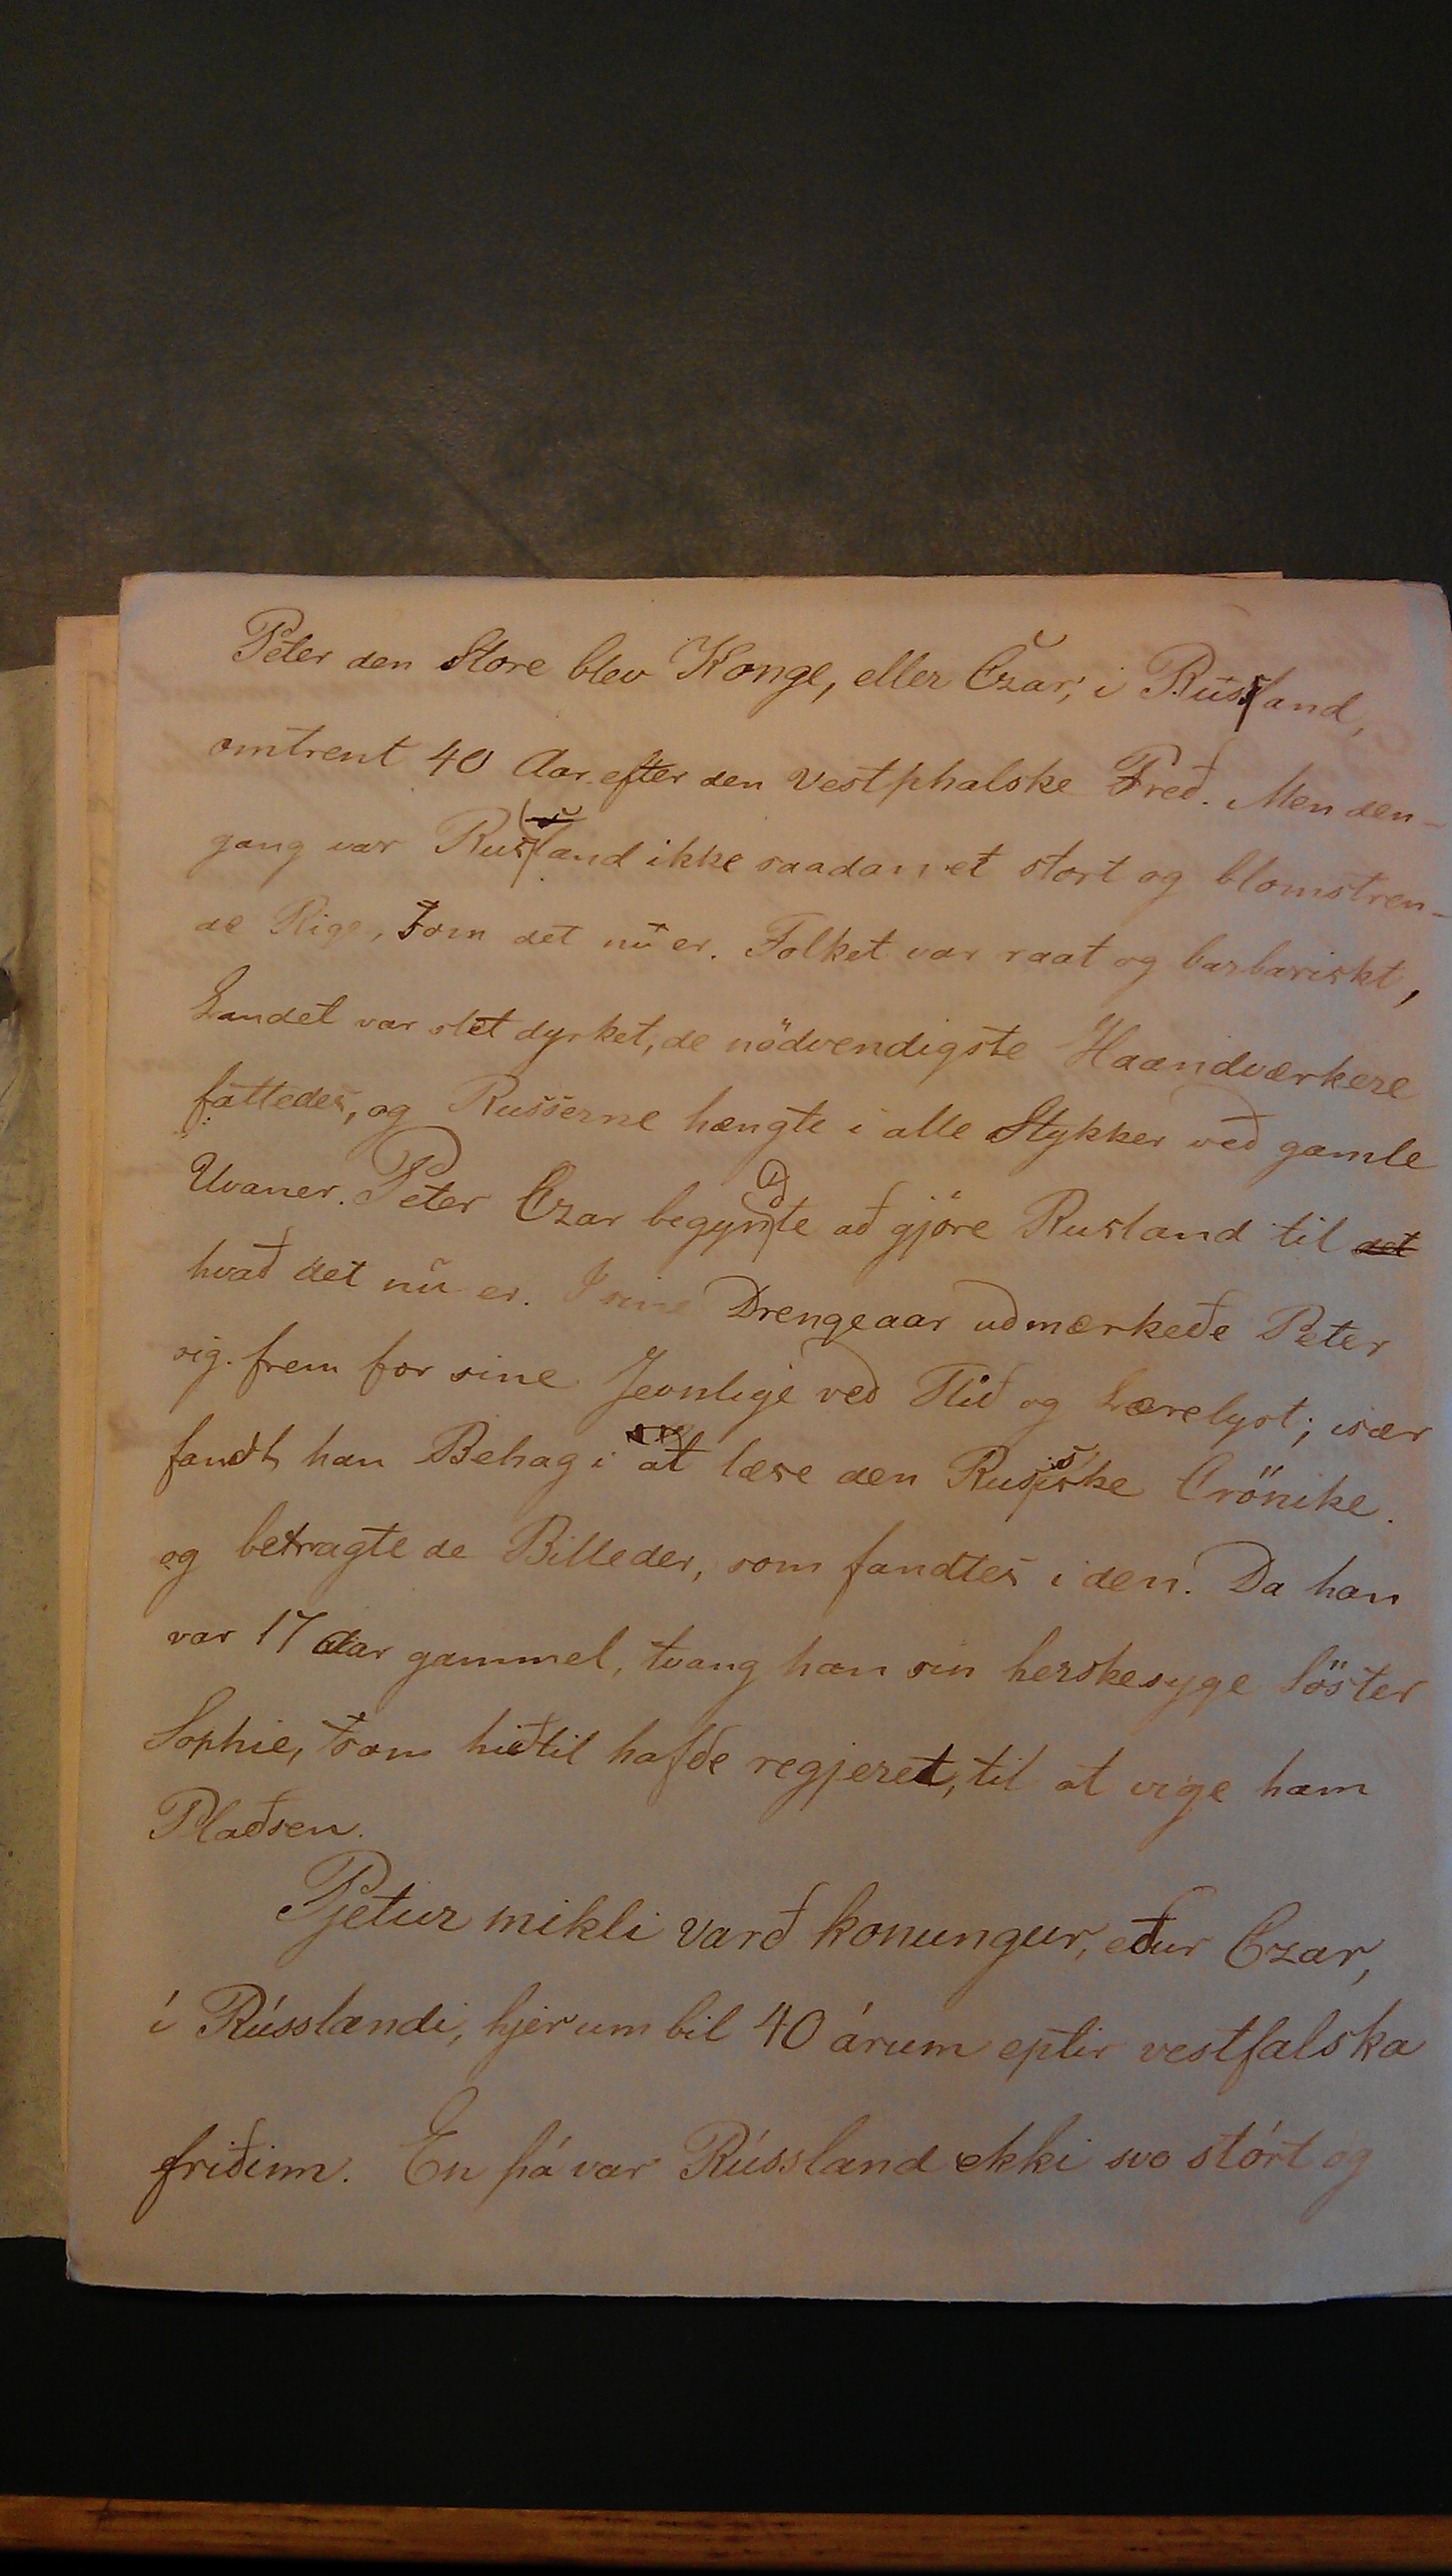 Peter den Store blev Konge, eller Czar, i Rusland,
omtrent 40 Aar efter den Vestphalske Freð. Men den-
gang var Rusland ikke saadan et stort og blomstren-
de Rige, som det nú er. Folket var raat og barbariskt,
Landet var slet dyrket, de nödvendigste Haandværkere
fattedes, og Russerne hængte i alle Stykker veð gamle
Uvaner. Peter Czar begyndte að gjöre Rusland til det
hvað det nú er. I sine Drengeaar uðmærkeðe Peter
sig frem for sine Jevnlige veð Flið og Lærelyst; især
fandt han Behag i at læse den Russiske Crönike
og betragte de Billeder, som fandtes i den. Da han
var 17 Aar gammel, tvang han sin herskesyge Söster
Sophie, som hidtil hafðe regjeret, til at vige ham
Plaðsen.
Pjetur mikli varð konungur, eður Czar,
í Rússlandi, hjer um bil 40 árum eptir vestfalska
friðinn. En þá var Rússland ekki svo stórt og